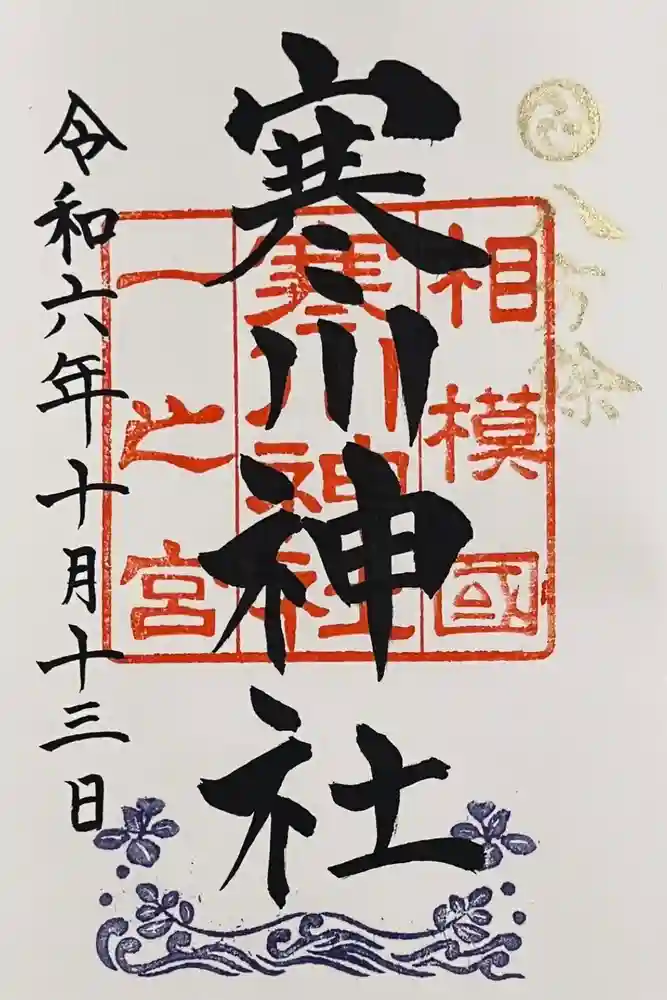 八方除
寒川神社
相模國
寒川神社
一之宮
令和六年十月十三日